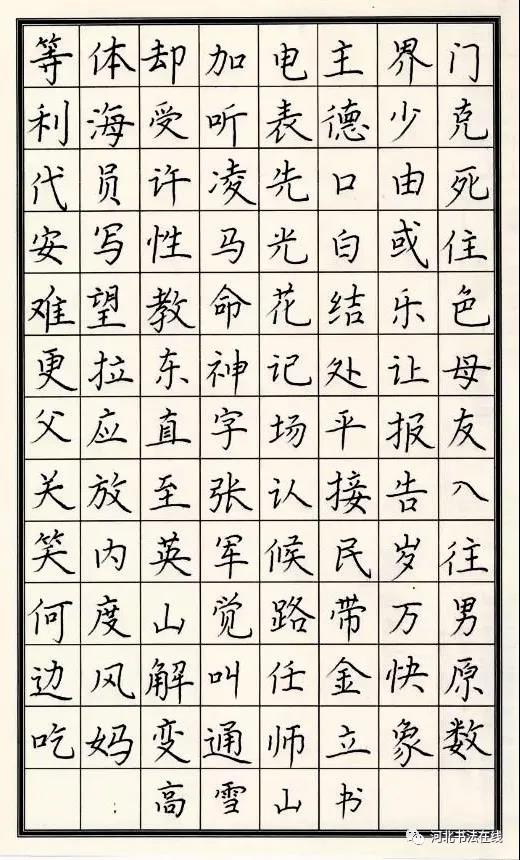 等体却加电主界门
利海受听表德少克
代员许凌先口由死
安写性马光白或住
难望教命花结乐色
更拉东神记处让母
父应直字场平报友
关放至张认接告入
笑内英军候民岁往
何度山觉路带万男
边风解叫任金快原
吃妈变通师立象数
高雪山书
河北书法在线